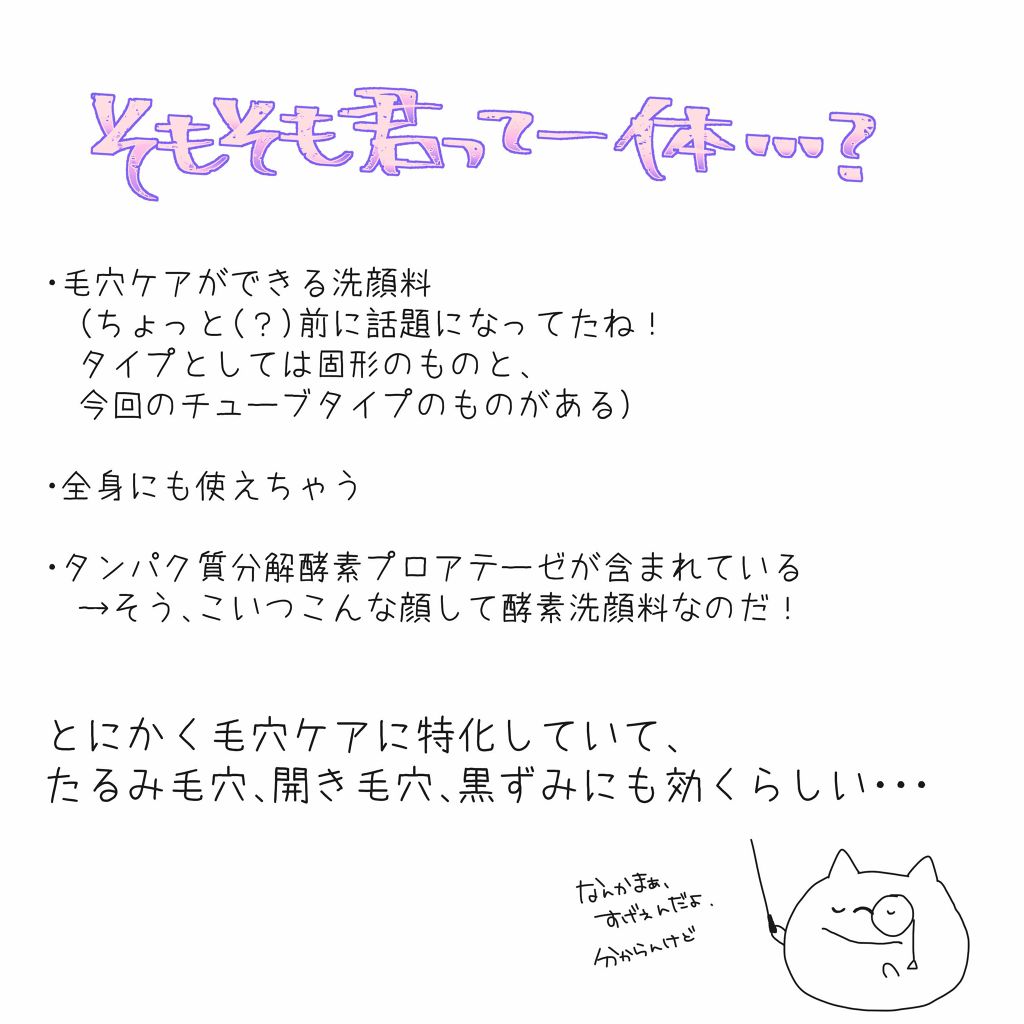 そもそも君って一体…?
・毛穴ケアができる洗顔料
(ちょっと(?)前に話題になってたね!
タイプとしては固形のものと、
今回のチューブタイプのものがある)
・全身にも使えちゃう
・タンパク質分解酵素プロアテーゼが含まれている
→そう、こいつこんな顔して酵素洗顔料なのだ!
とにかく毛穴ケアに特化していて、
たるみ毛穴、開き毛穴、黒ずみにも効くらしい・・・
なんかまぁ、
すげぇんだよ.
分からんけど